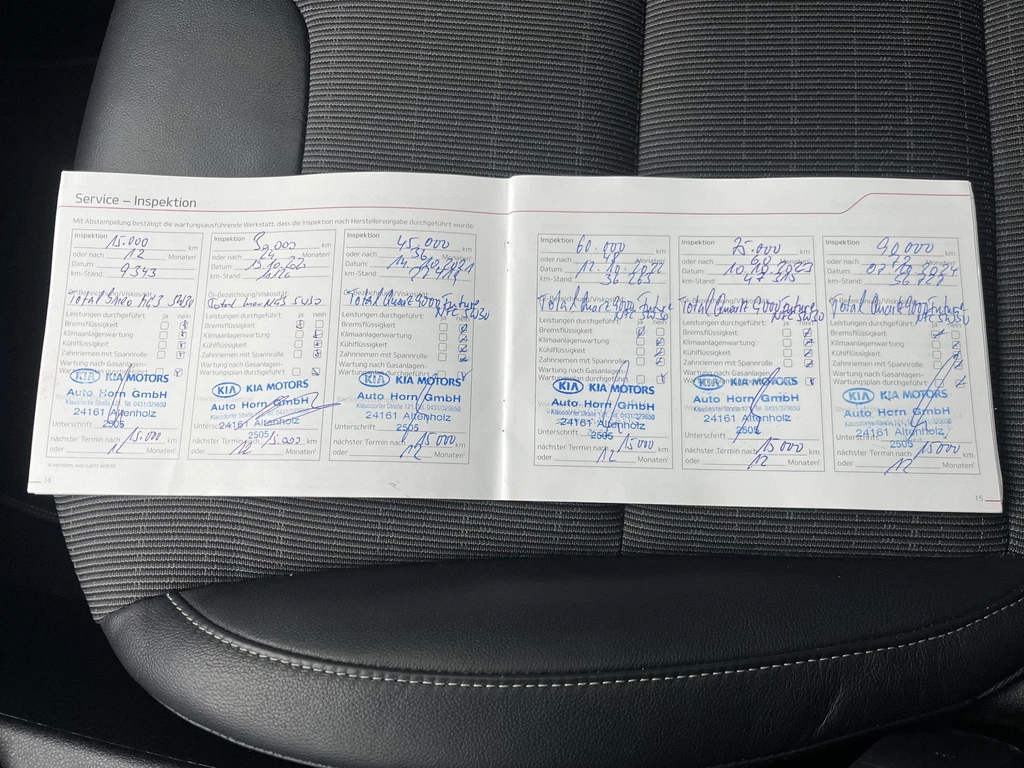 Service – Inspektion
Mit Abstempelung bestätigt die wartungsausführende Werkstatt, dass die Inspektion nach Herstellervorgabe durchgeführt wurde.
Inspektion 15.000 km
oder nach 12 Monaten¹
Datum:
km-Stand: 9343
Öl-Bezeichnung/Viskosität
Total
Leistungen durchgeführt: ja nein
Bremsflüssigkeit
Klimaanlagenwartung
Kühlflüssigkeit
Zahnriemen mit Spannrolle
Wartung nach Gasanlagen-
KIA KIA MOTORS
Auto Horn GmbH
24161 Altenholz
2505
Unterschrift
nächster Termin nach 15.000 km
oder 12 Monaten¹
Inspektion
oder nach 24 Monaten¹
Datum:
km-Stand:
Öl-Bezeichnung/Viskosität
Leistungen durchgeführt: ja nein
Bremsflüssigkeit
Klimaanlagenwartung
Kühlflüssigkeit
Zahnriemen mit Spannrolle
Wartung nach Gasanlagen-
Wartungsplan durchgeführt:
KIA KIA MOTORS
Auto Horn GmbH
24161 Altenholz
2505
Unterschrift
nächster Termin nach 15.000 km
oder 12 Monaten¹
Inspektion 45.000 km
oder nach 36 Monaten¹
Datum:
km-Stand:
Total Quartz 9000 Future
NFC 5W30
Leistungen durchgeführt: ja nein
Bremsflüssigkeit
Klimaanlagenwartung
Kühlflüssigkeit
Zahnriemen mit Spannrolle
Wartung nach Gasanlagen-
Wartungsplan durchgeführt:
KIA KIA MOTORS
Auto Horn GmbH
24161 Altenholz
2505
Unterschrift
nächster Termin nach 15000 km
oder 12 Monaten¹
14
Inspektion 60.000 km
oder nach 48 Monaten¹
Datum: 12.10.2022
km-Stand: 36265
Total Quartz 9000 Future
NFC 5W30
Leistungen durchgeführt: ja nein
Bremsflüssigkeit
Klimaanlagenwartung
Kühlflüssigkeit
Zahnriemen mit Spannrolle
Wartung nach Gasanlagen-
Wartungsplan durchgeführt:
KIA KIA MOTORS
Auto Horn GmbH
24161 Altenholz
2505
Unterschrift
nächster Termin nach 15000 km
oder 12 Monaten¹
Inspektion 75.000 km
oder nach 60 Monaten¹
Datum: 10.10.2023
km-Stand: 47315
Total Quartz 9000 Future
NFC 5W30
Leistungen durchgeführt: ja nein
Bremsflüssigkeit
Klimaanlagenwartung
Kühlflüssigkeit
Zahnriemen mit Spannrolle
Wartung nach Gasanlagen-
Wartungsplan durchgeführt:
KIA KIA MOTORS
Auto Horn GmbH
24161 Altenholz
2505
Unterschrift
nächster Termin nach 15000 km
oder 12 Monaten¹
Inspektion 90.000 km
oder nach 72 Monaten¹
Datum:
km-Stand: 56728
Total Quartz 9000 Future
NFC 5W30
Leistungen durchgeführt: ja nein
Bremsflüssigkeit
Klimaanlagenwartung
Kühlflüssigkeit
Zahnriemen mit Spannrolle
Wartung nach Gasanlagen-
Wartungsplan durchgeführt:
KIA KIA MOTORS
Auto Horn GmbH
24161 Altenholz
2505
Unterschrift
nächster Termin nach 15000 km
oder 12 Monaten¹
15